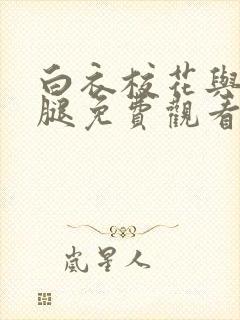 白衣校花與
腿免費觀看
嵐星人